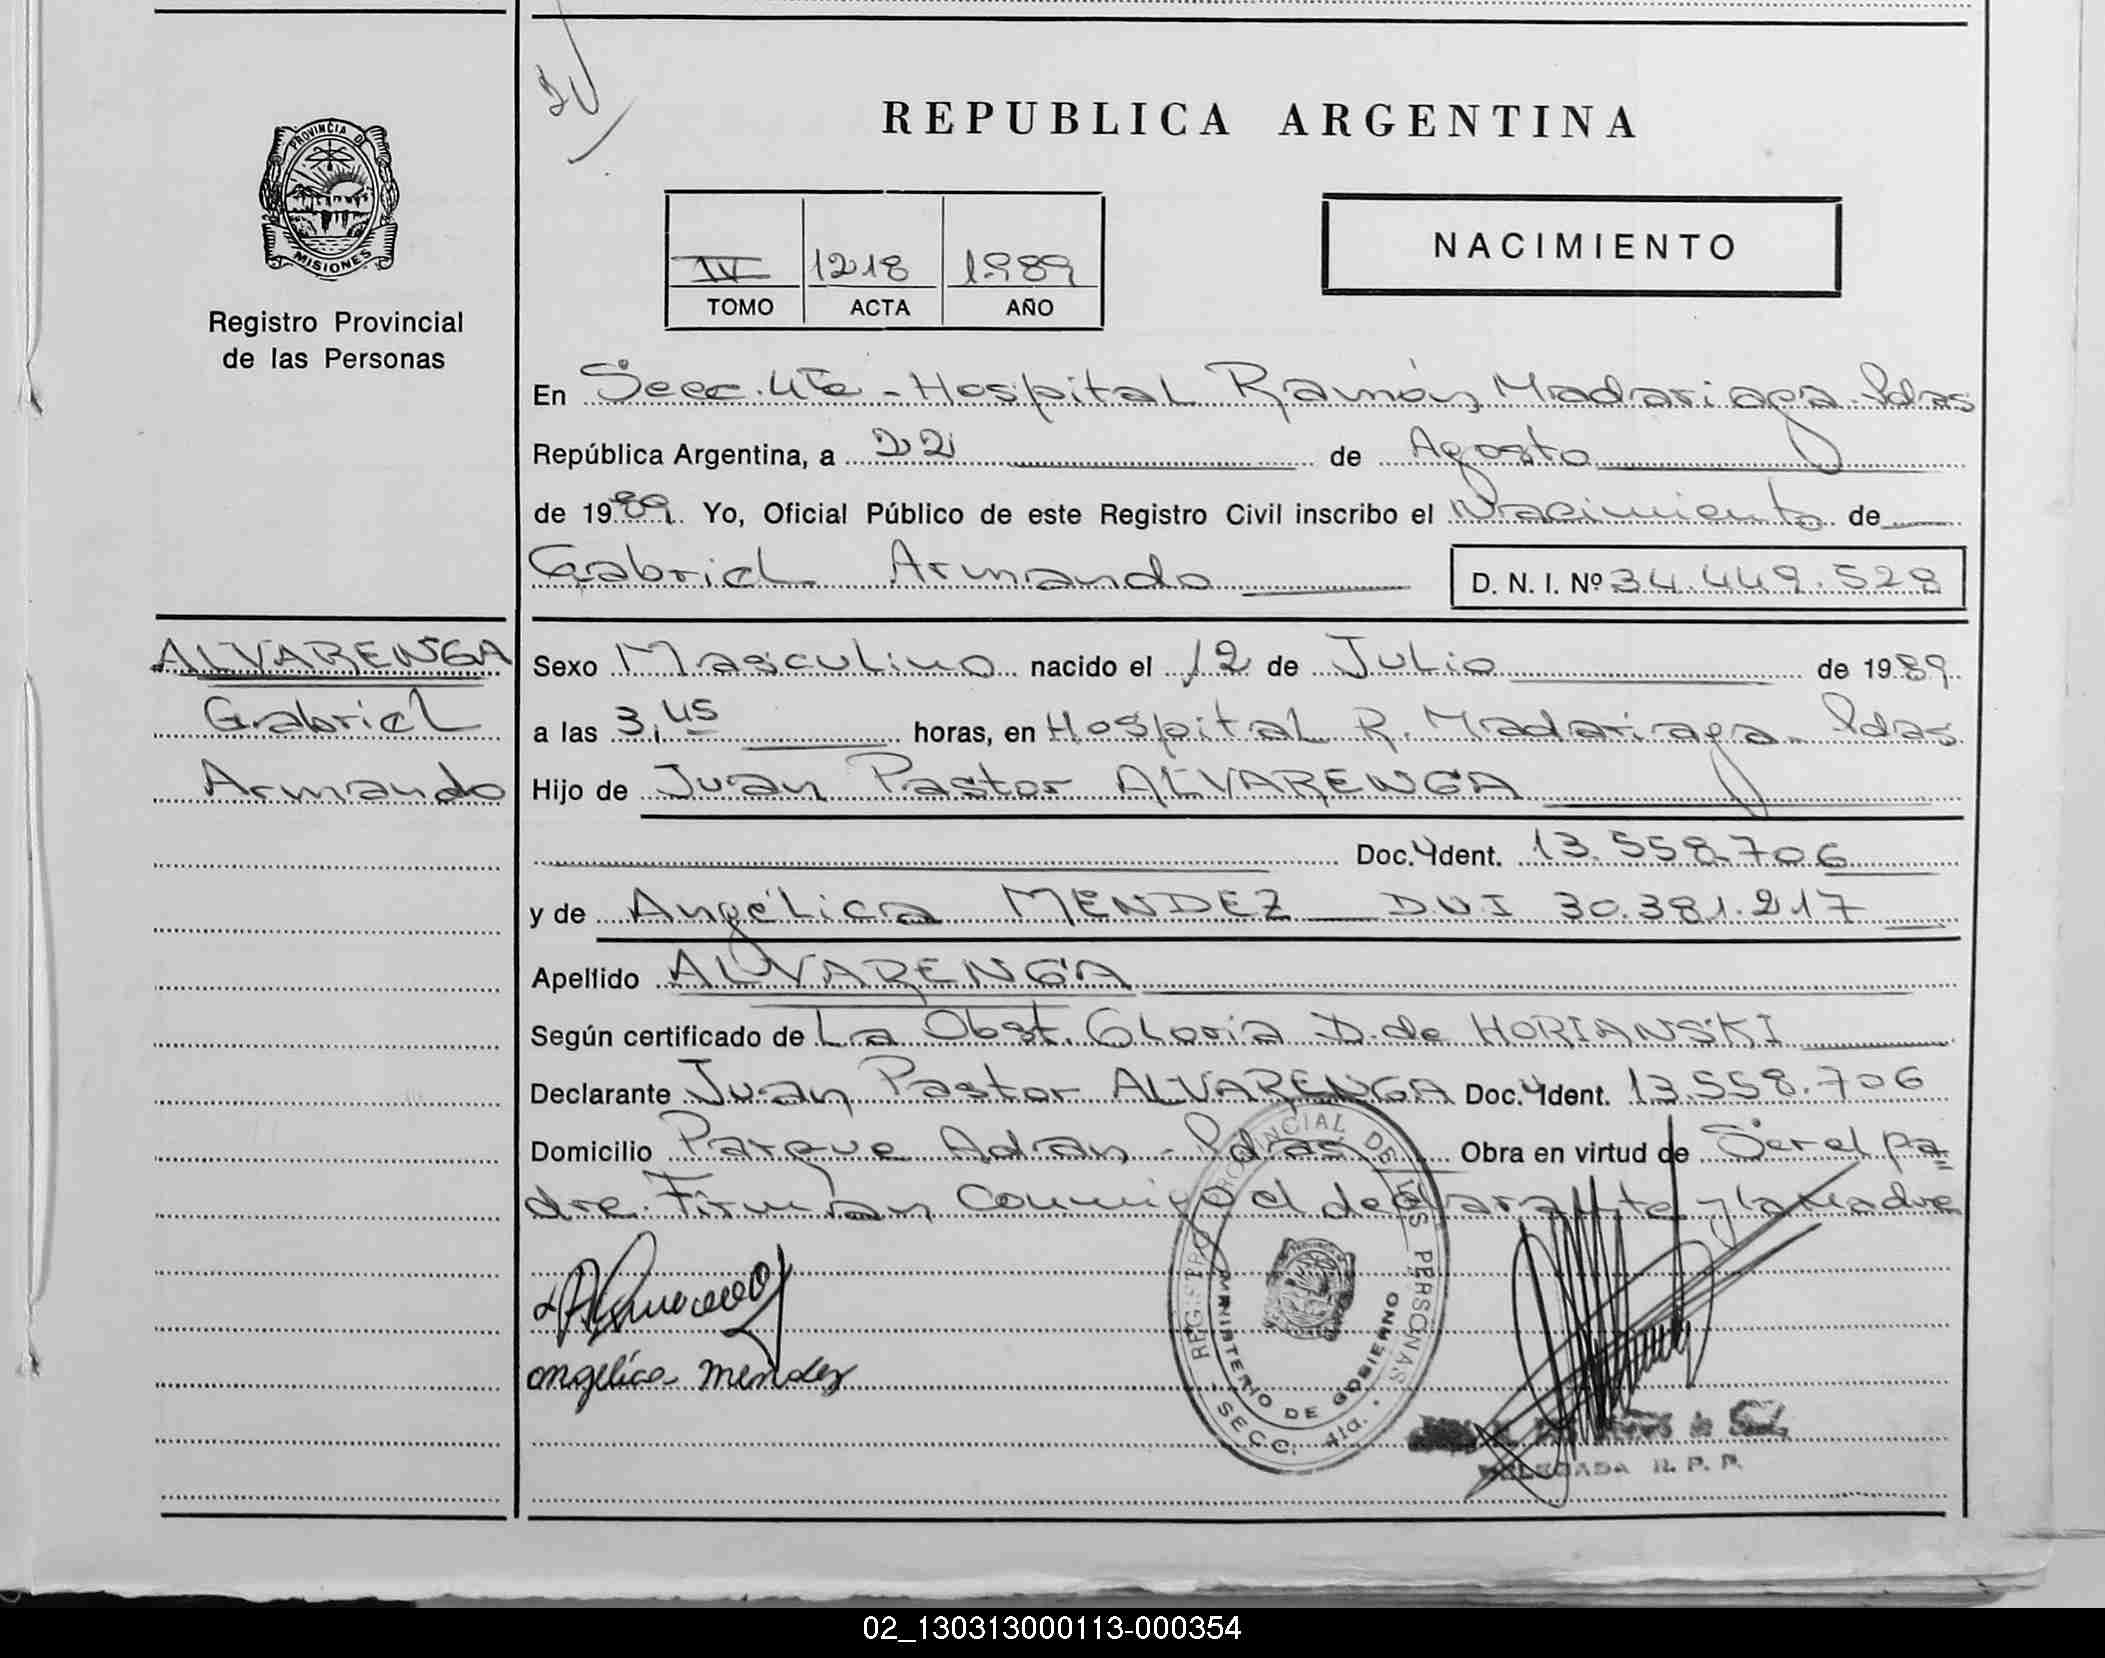 REPUBLICA ARGENTINA
PROVINCIA DE
MISIONES
Registro Provincial
de las Personas
IV 1218 1989
TOMO ACTA AÑO
NACIMIENTO
En Secc. 4ta - Hospital Ramón Madariaga - Pdas
República Argentina, a 22 de Agosto
de 1989. Yo, Oficial Público de este Registro Civil inscribo el Nacimiento de
Gabriel Armando D. N. I. Nº 34.449.528
ALVARENGA
Gabriel
Armando
Sexo Masculino nacido el 12 de Julio de 1989.
a las 3,45 horas, en Hospital R. Madariaga - Pdas
Hijo de Juan Pastor ALVARENGA
Doc. Ydent. 13.558.706
y de Angélica MENDEZ DNI 30.381.217
Apellido ALVARENGA
Según certificado de La Obst. Gloria D. de HORIANSKI
Declarante Juan Pastor ALVARENGA Doc. Ydent. 13.558.706
Domicilio Parque Adran - Pdas Obra en virtud de Ser el pa=
dre. Firman Conmigo el declarante y la Madre
REGISTRO PROVINCIAL DE LAS PERSONAS
MINISTERIO DE GOBIERNO
SECC. 4ta.
angelica mendez
DELEGADA R. P. P.
02_130313000113-000354